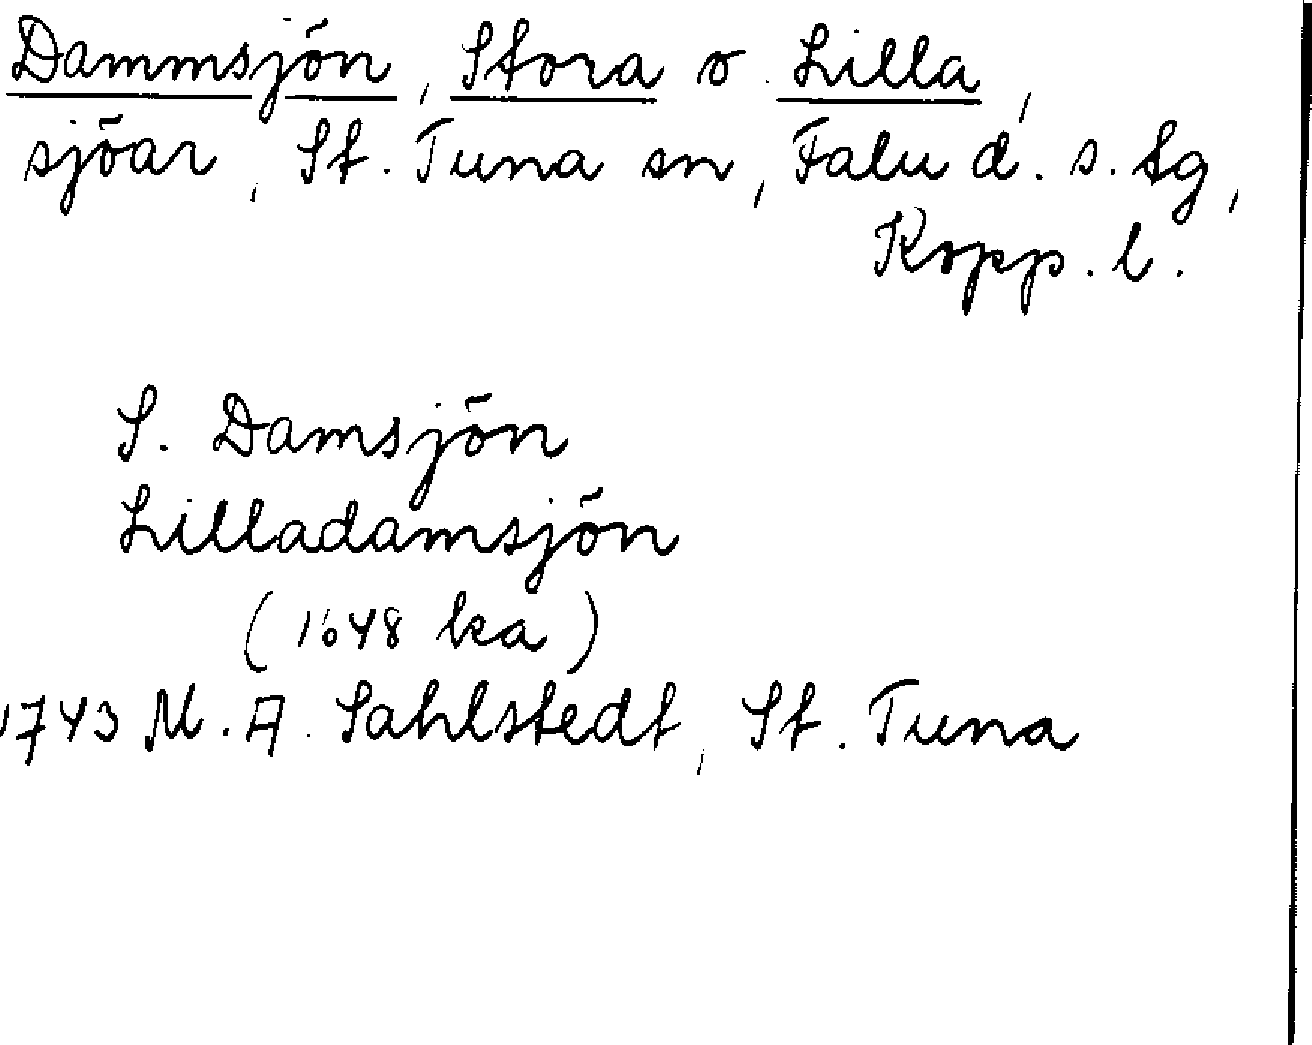 Dammsjön, Stora o. Lilla,
sjöar, St. Tuna sn, Falu d. s. tg,
Kopp. l.
S. Damsjön
Lilladamsjön
(1648 ka)
1743 M. A. Sahlstedt, St. Tuna